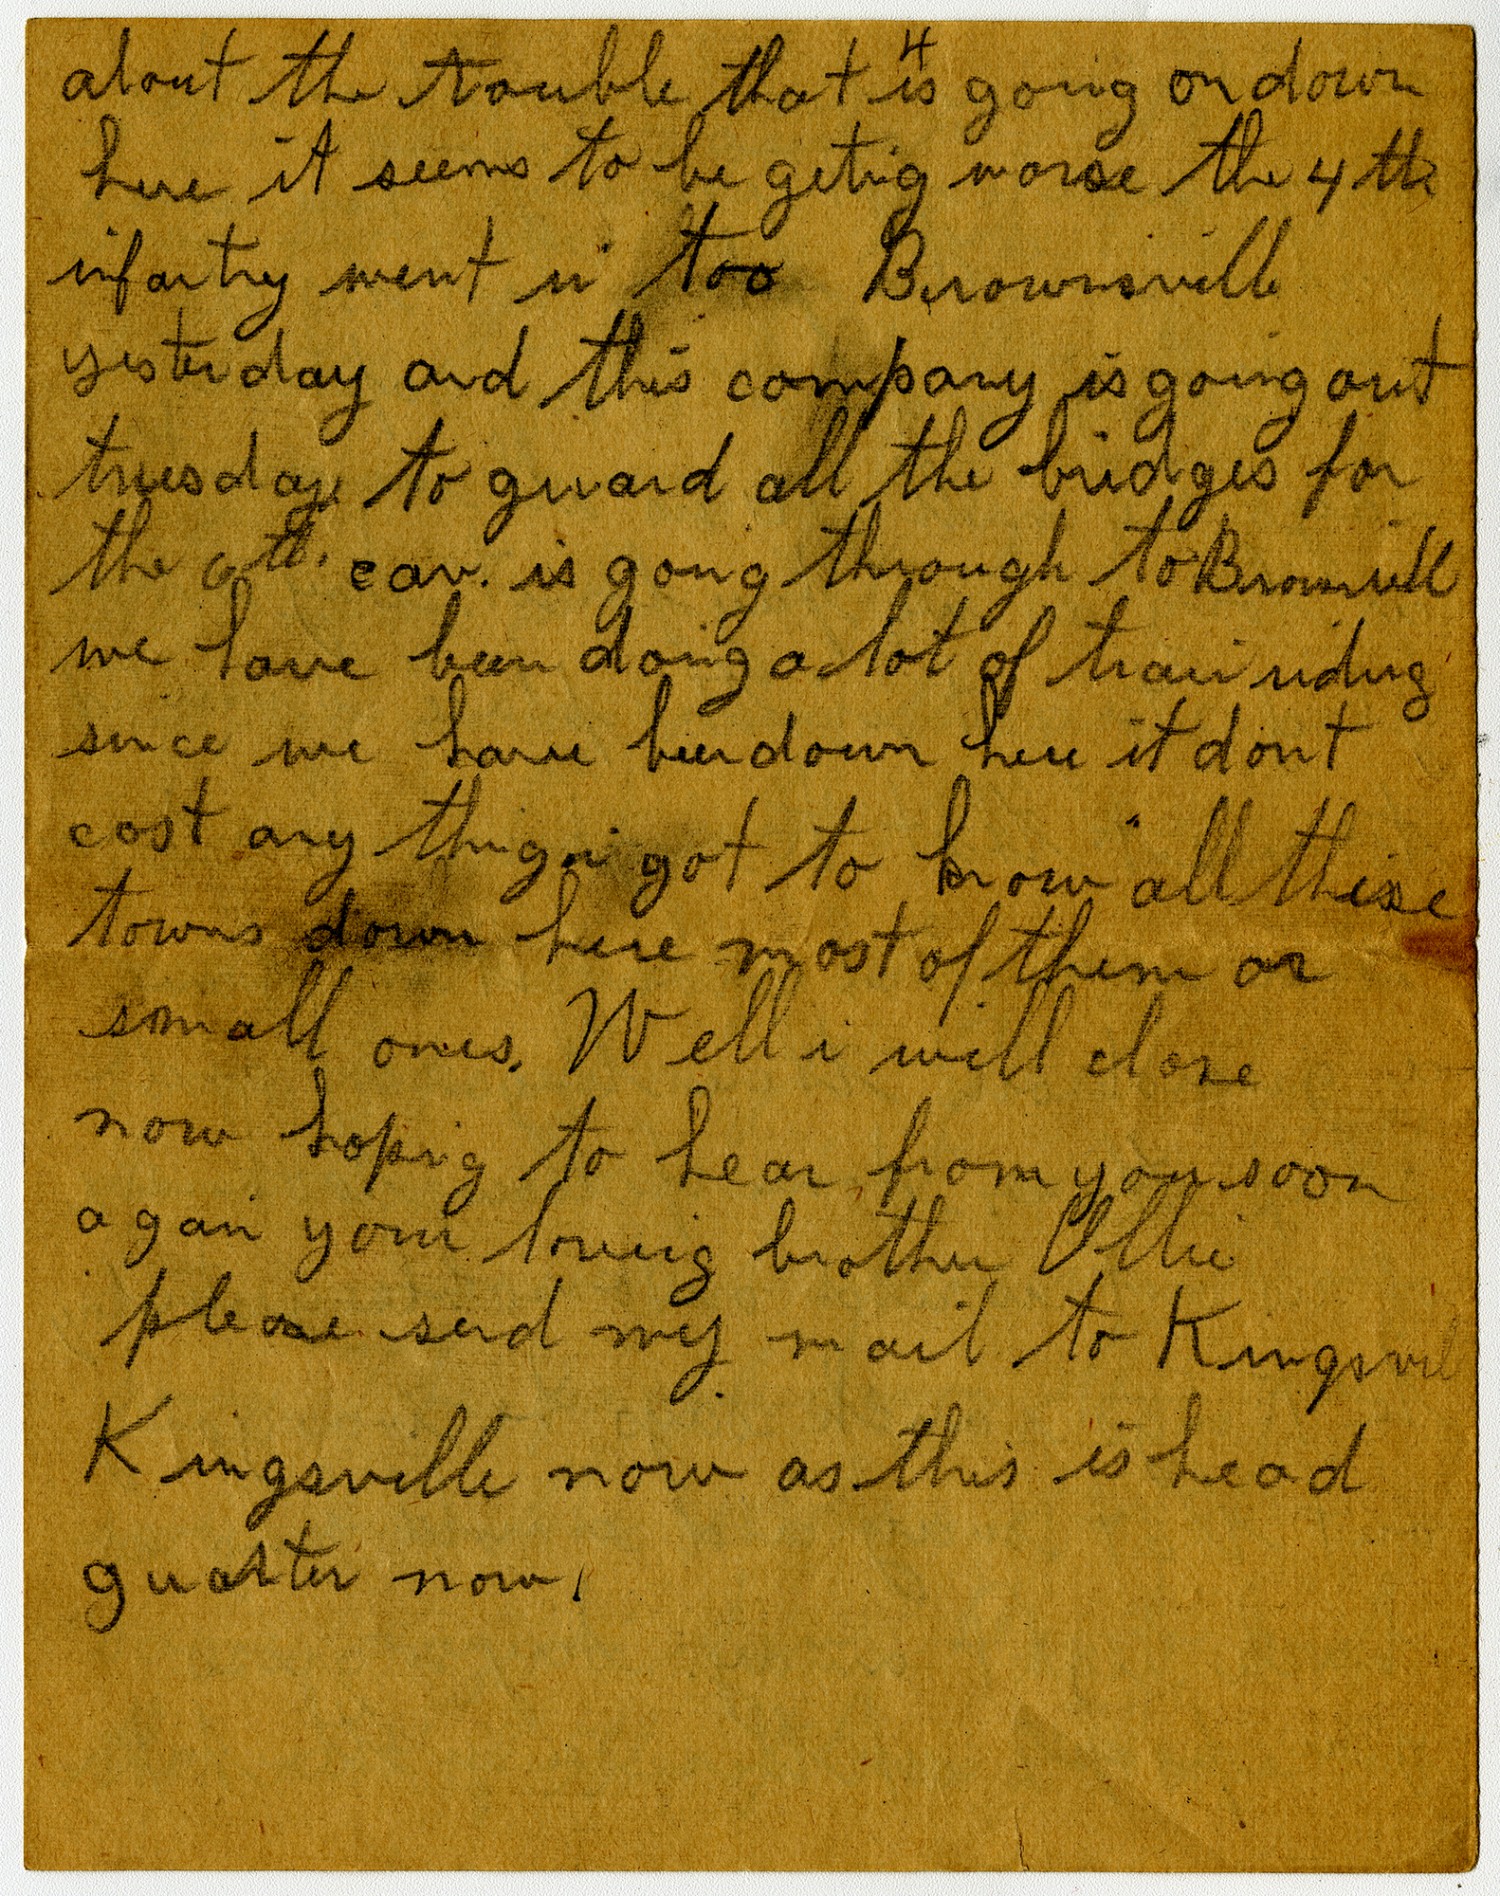 4
about the trouble that is going on down
here it seems to be geting worse the 4 th
infantry went in too Brownsville
yesterday and this company is going out
tuesday to guard all the bridges for
the 6th. cav. is going through to Brownvill
we have been doing a lot of train riding
since we have been down here it dont
cost any thing i got to know all these
towns down here most of them or
small ones. Well i will close
now hoping to hear from you soon
again your loving brother Ollie
please send my mail to Kingsvil
Kingsville now as this is head
quarter now.